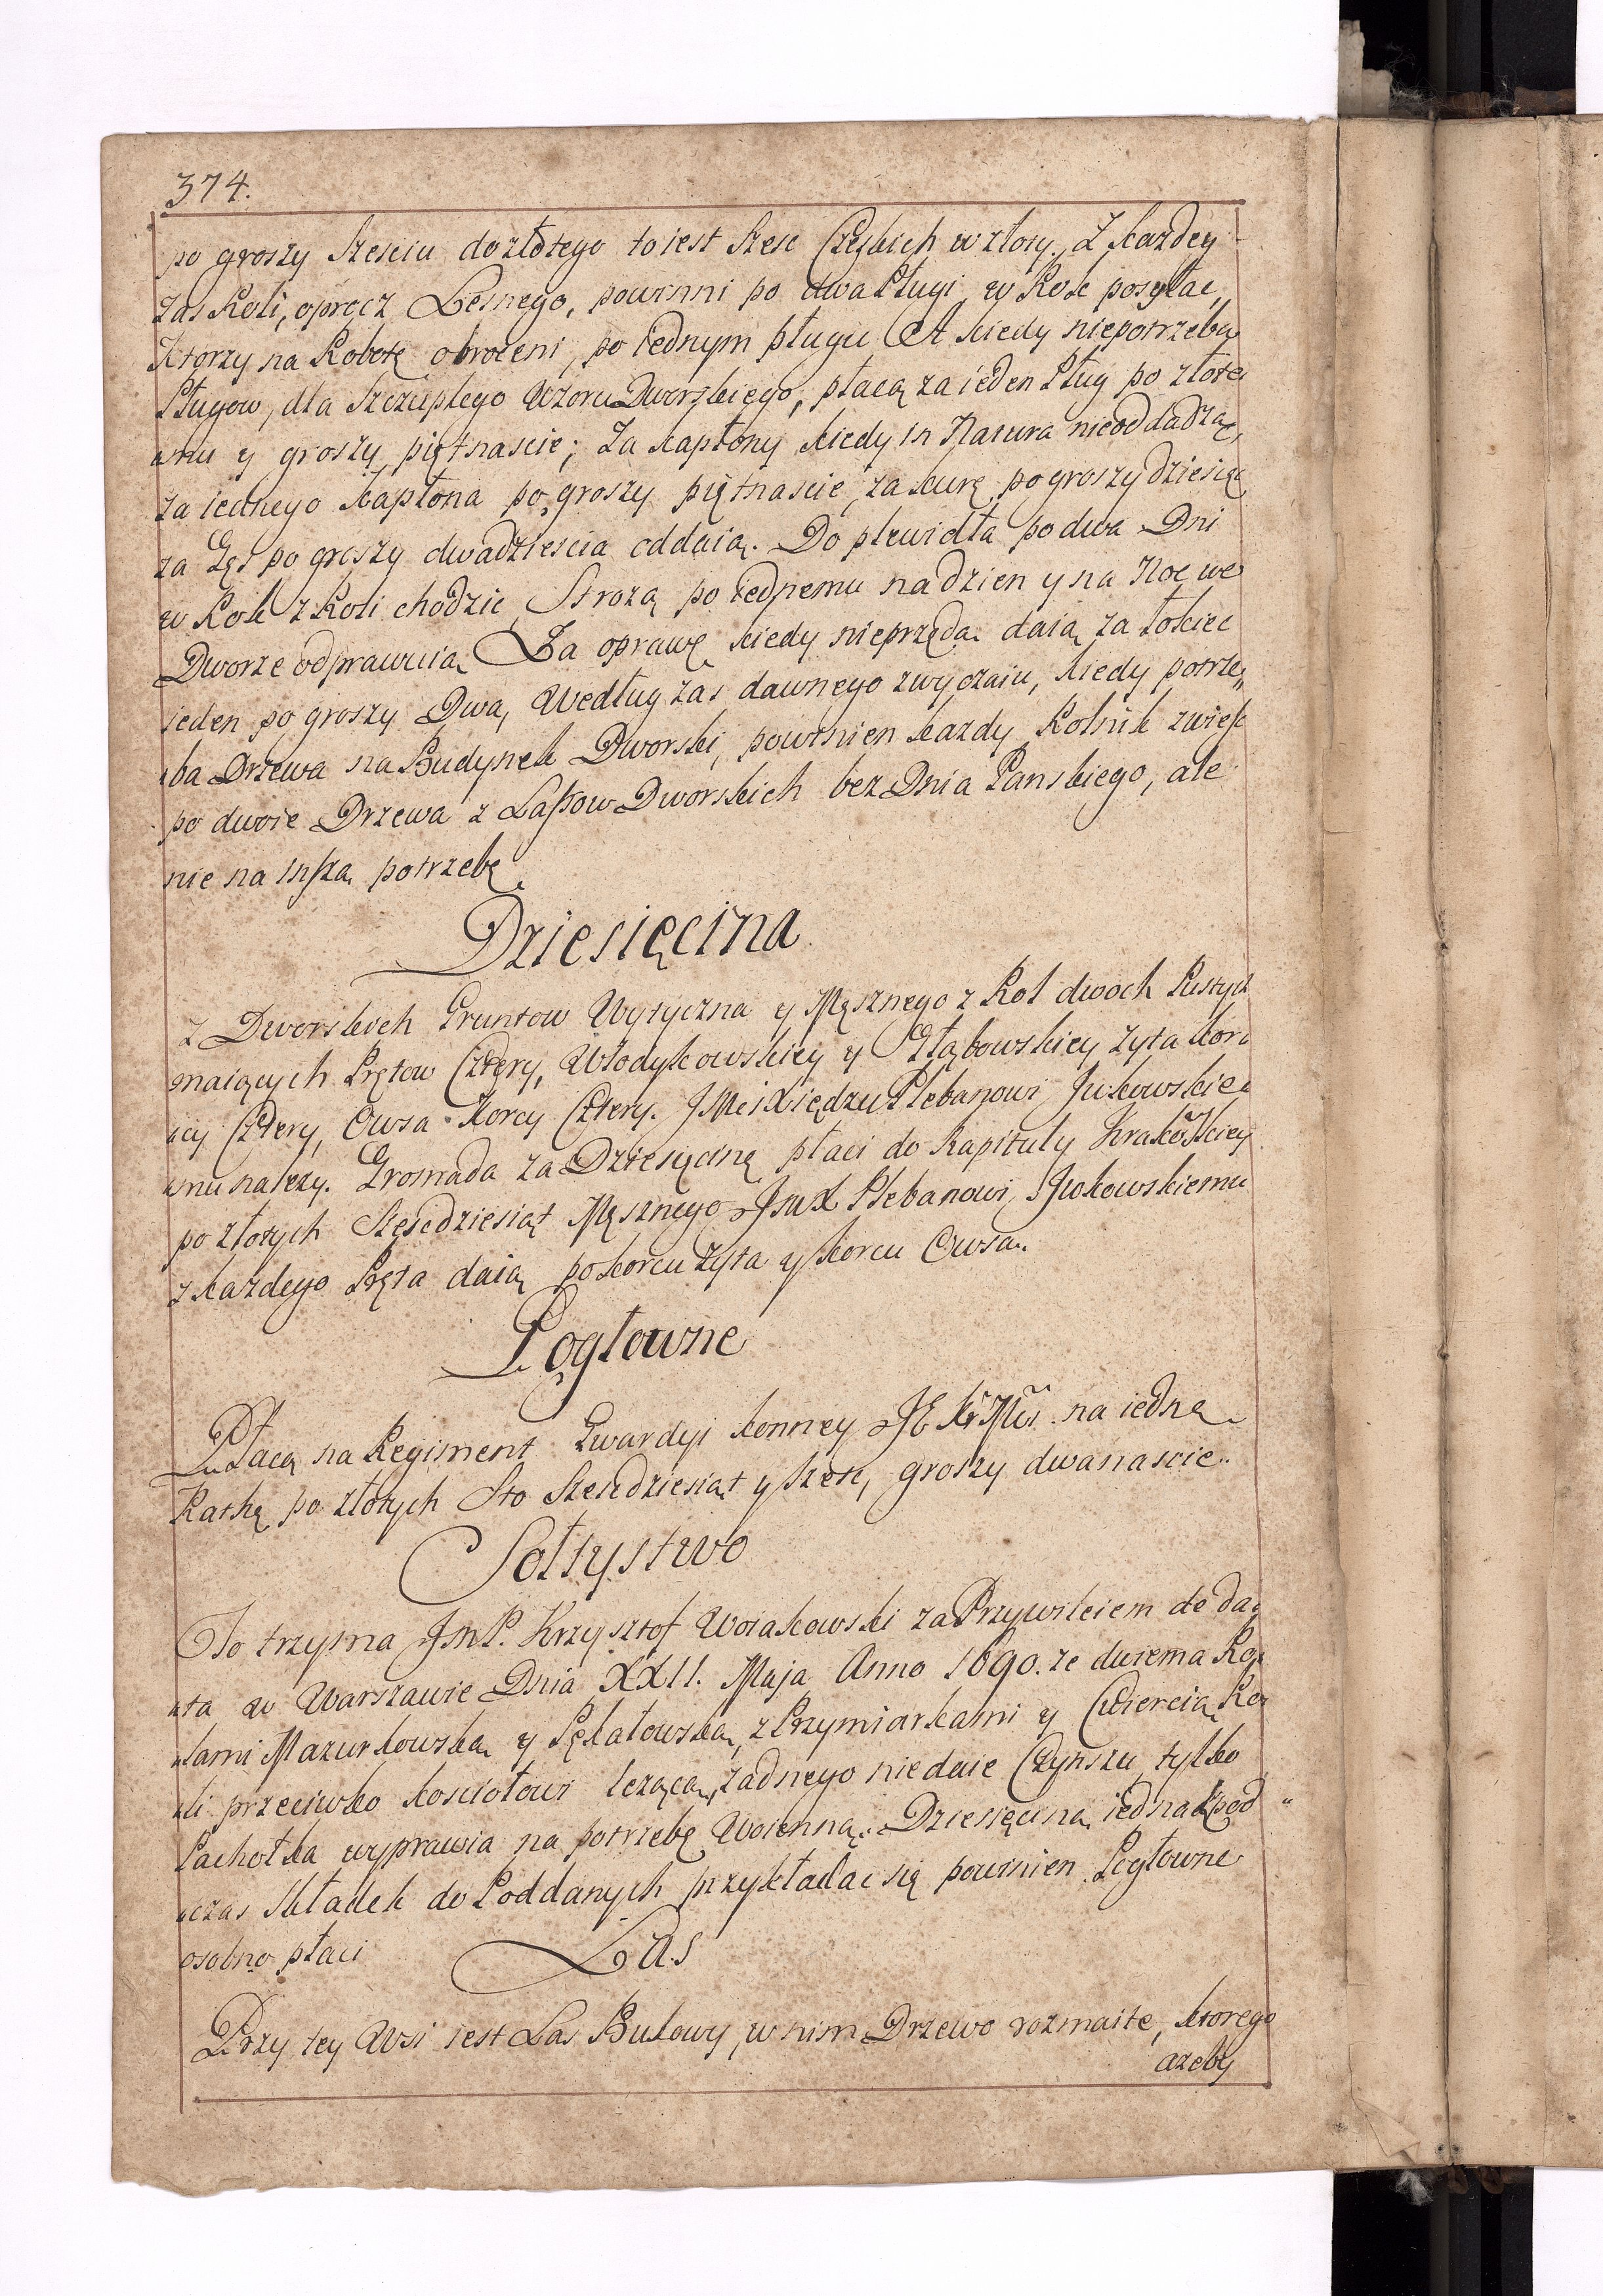 374.
po groszy szesciu do złotego to iest szesc Czeskich w złoty, Z kazdey
zas Roli, oprocz Lesnego, powinni po dwa Pługi w Rok posyłac,
ktorzy na Robotę obroceni, po iednym pługu A kiedy niepotrzeba
Pługow, dla szczupłego Uzoru Dworskiego, płacą za ieden Pług po złote„
„mu y groszy piętnascie; Za kapłony kiedy in Natura nieoddadzą,
za iednego kapłona po groszy piętnascie, za kurę po groszy dziesięc
za Gęs po groszy dwadziescia oddaią. Do plewidła po dwa Dni
w Rok z Roli chodzic, Strozą po iednemu na dzien y na Noc we
Dworze odprawuią Za oprawę kiedy nieprzędą daią za łokiec
ieden po groszy Dwa, Według zas dawnego zwyczaiu, kiedy potrze„
„ba Drzewa na Budynek Dworski, powinien kazdy Rolnik zwiesc
po dwoie Drzewa z Lassow Dworskich bez Dnia Panskiego, ale
nie na inszą potrzebę
Dziesięcina
Z Dworskich Gruntow Wytyczna y Męsznego z Rol dwoch Pustych
maiących Prętow Cztery, Włodykowskiey y Głąbowskiey zyta kor„
„cy Cztery, Owsa Korcy Cztery. JMci Xiędzu Plebanowi Jukowskie„
„mu nalezy. Gromada za Dziesięcinę płaci do Kapituły Krakowskiey
po złotych Szescdziesiąt Męsznego JmX Plebanowi Jukowskiemu
z kazdego Pręta daią po korcu Zyta y korcu Owsa.
Pogłowne
Płacą na Regiment Gwardyi konney JE Kr Mci na iedną
Rathę po złotych Sto Szescdziesiąt y szesc, groszy dwanascie.
Sołtystwo
To trzyma JmP. Krzysztof Woiakowski za Przywileiem de da„
„ta w Warszawie Dnia XXII. Maja Anno 1690. ze dwiema Ro„
„lami Mazurkowską y Pękatowską, z Przymiarkami y Cwiercią Ro„
„li przeciwko kosciołowi lezącą, zadnego niedaie Czynszu, tylko
Pachołka wyprawia na potrzebę Woienną. Dziesięciną iednak pod„
„czas składek do Poddanych przykładac się powinien Pogłowne
osobno płaci
Las
Przy tey Wsi iest Las Bukowy, w nim Drzewo rozmaite, ktorego
azeby